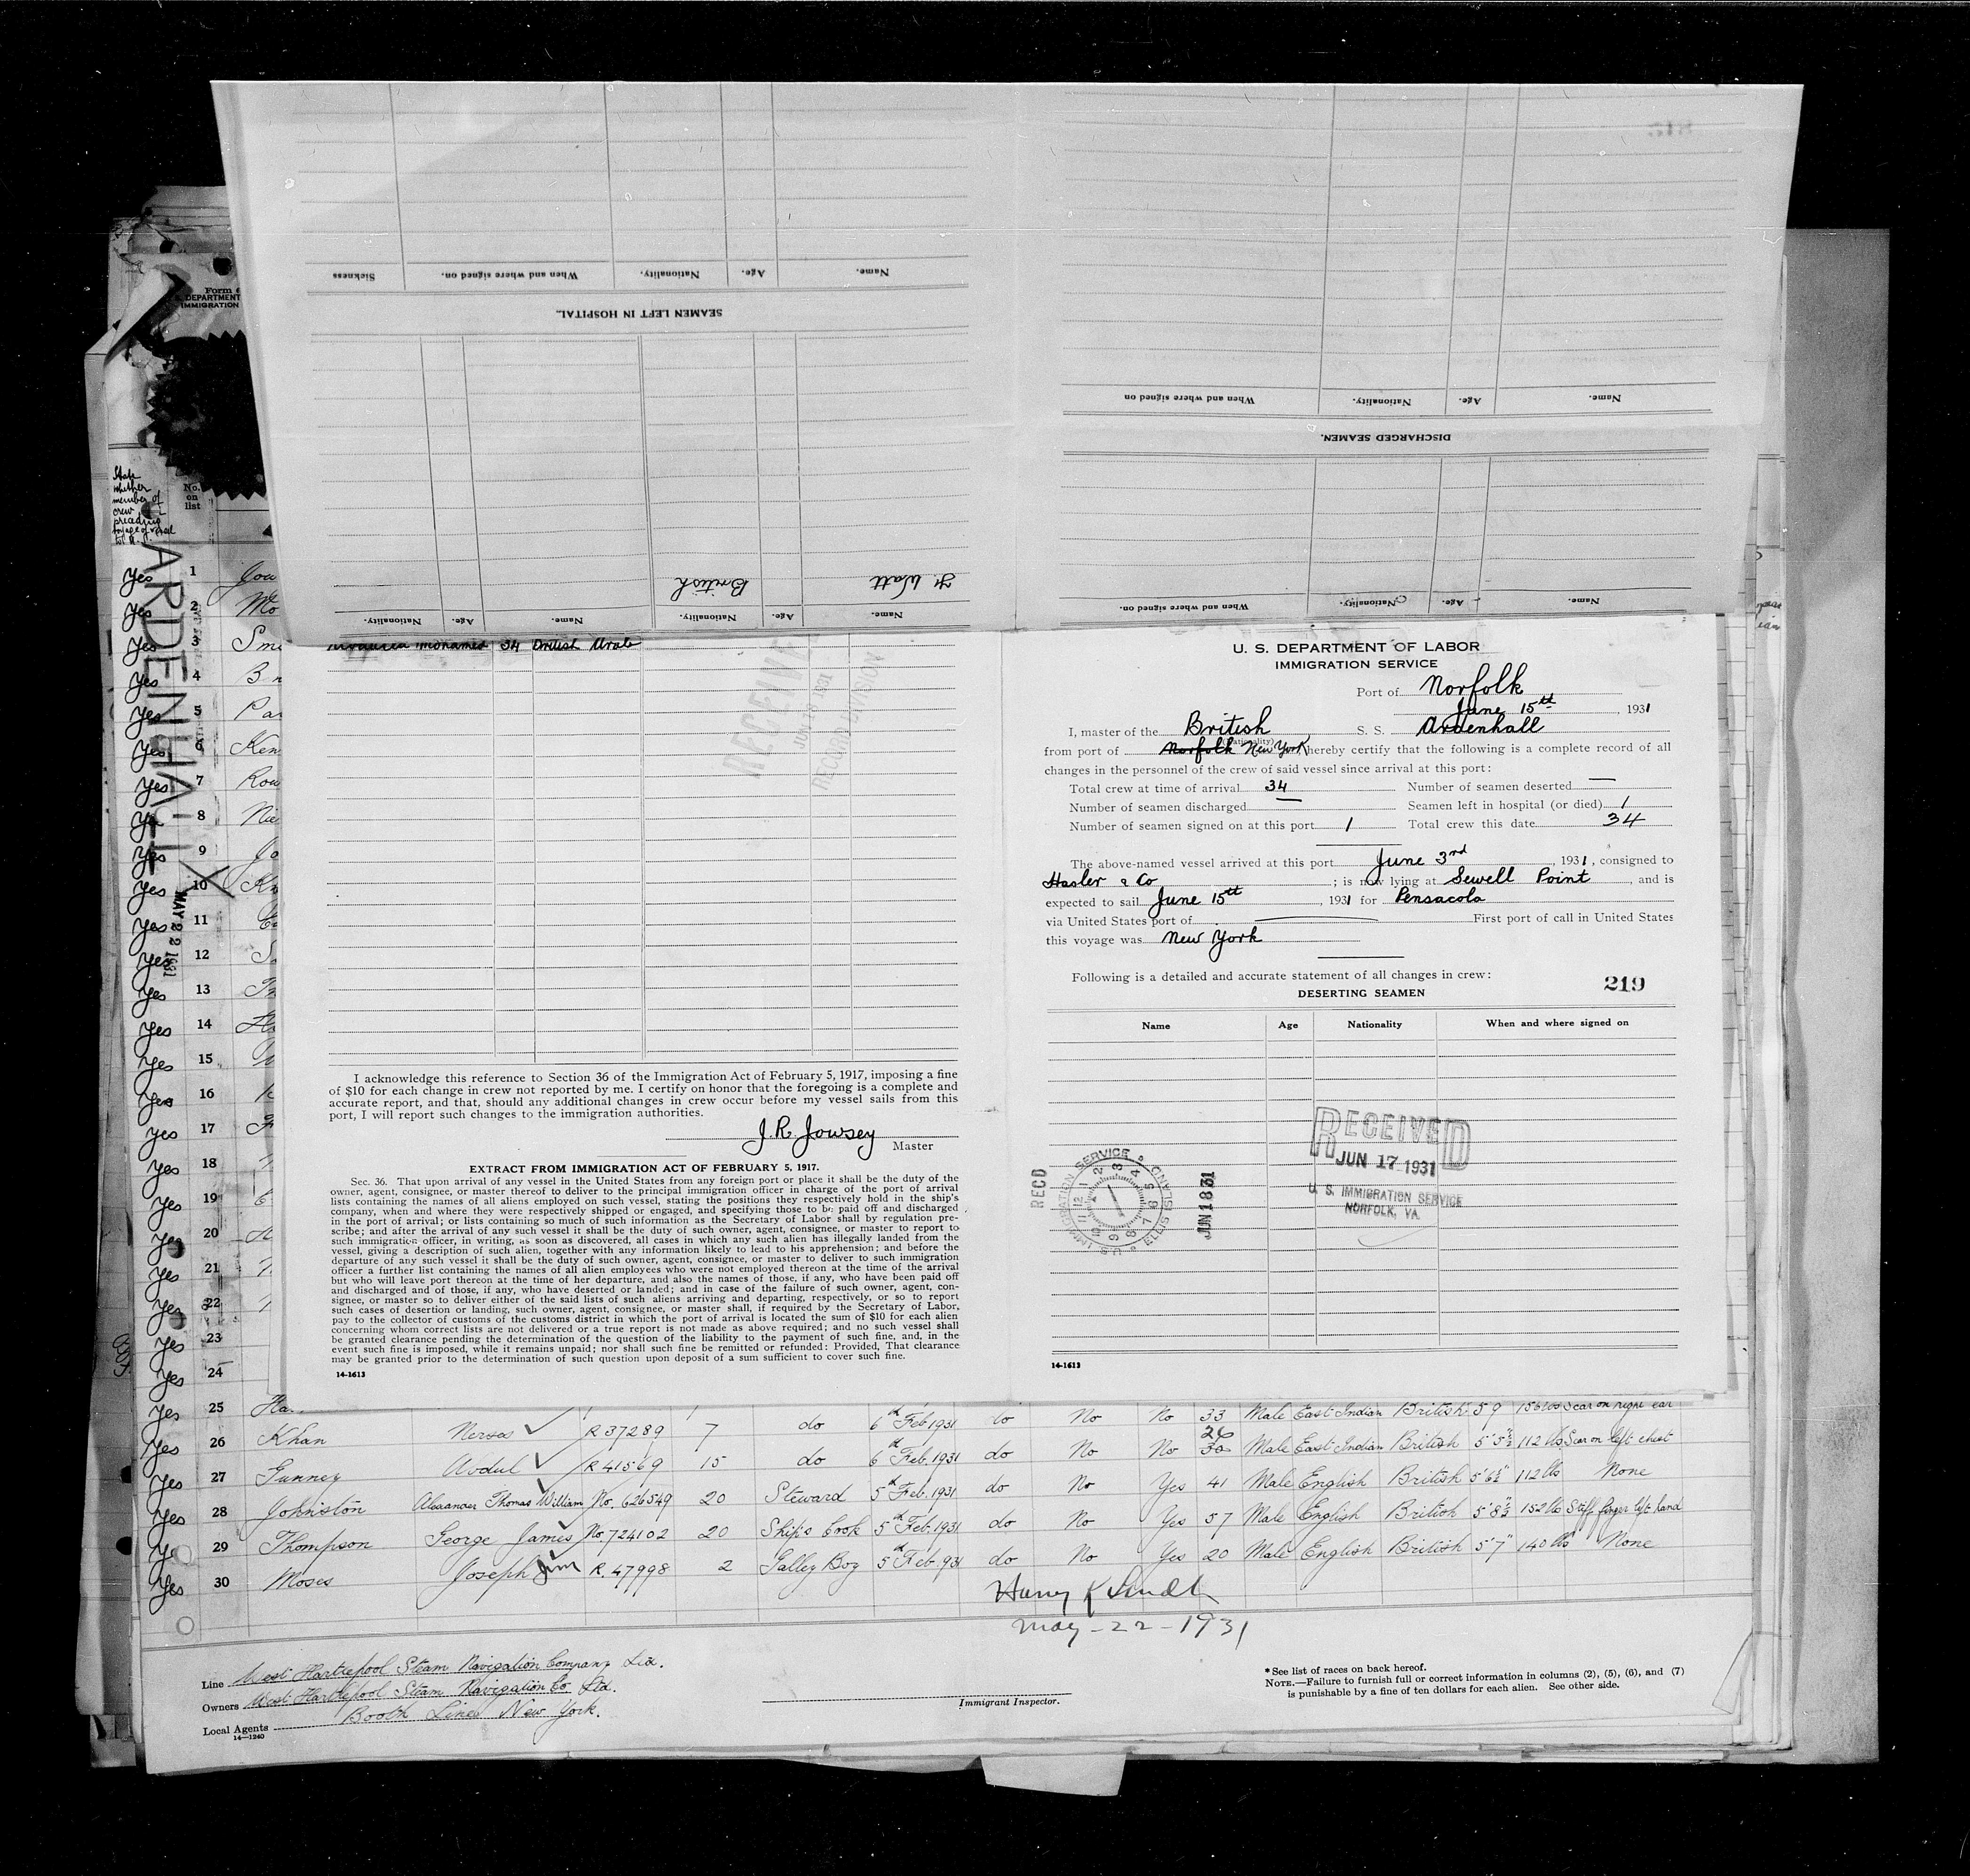 Sickness
When and where signed on.
Nationality.
Age.
Name.
SEAMEN LEFT IN HOSPITAL.
When and where signed on
Nationality.
Age.
Name.
DISCHARGED SEAMEN.
British
Jr. Watt
Nationality.
Age.
Name.
Nationality.
Age.
Name.
When and where signed on.
Nationality.
Age.
Name.
Form
DEPARTMENT
IMMIGRATION
State
whether
member of
crew
preceding
No.
on
list
ARDENHALL
MAY 22 1931
Yes 1
Yes 2
Yes 3
Yes 4
Yes 5
Yes 6
Yes 7
Yes 8
Yes 9
Yes 10
Yes 11
Yes 12
Yes 13
Yes 14
Yes 15
Yes 16
Yes 17
Yes 18
Yes 19
Yes 20
Yes 21
Yes 22
Yes 23
Yes 24
Mohamed 34 British Arab
RECEIVED
JUN 18 1931
RECORD DIVISION
I acknowledge this reference to Section 36 of the Immigration Act of February 5, 1917, imposing a fine
of $10 for each change in crew not reported by me. I certify on honor that the foregoing is a complete and
accurate report, and that, should any additional changes in crew occur before my vessel sails from this
port, I will report such changes to the immigration authorities.
J. R. Jowsey
Master
EXTRACT FROM IMMIGRATION ACT OF FEBRUARY 5, 1917.
Sec. 36. That upon arrival of any vessel in the United States from any foreign port or place it shall be the duty of the
owner, agent, consignee, or master thereof to deliver to the principal immigration officer in charge of the port of arrival
lists containing the names of all aliens employed on such vessel, stating the positions they respectively hold in the ship's
company, when and where they were respectively shipped or engaged, and specifying those to be paid off and discharged
in the port of arrival; or lists containing so much of such information as the Secretary of Labor shall by regulation pre-
scribe; and after the arrival of any such vessel it shall be the duty of such owner, agent, consignee, or master to report to
such immigration officer, in writing, as soon as discovered, all cases in which any such alien has illegally landed from the
vessel, giving a description of such alien, together with any information likely to lead to his apprehension; and before the
departure of any such vessel it shall be the duty of such owner, agent, consignee, or master to deliver to such immigration
officer a further list containing the names of all alien employees who were not employed thereon at the time of the arrival
but who will leave port thereon at the time of her departure, and also the names of those, if any, who have been paid off
and discharged and of those, if any, who have deserted or landed; and in case of the failure of such owner, agent, con-
signee, or master so to deliver either of the said lists of such aliens arriving and departing, respectively, or so to report
such cases of desertion or landing, such owner, agent, consignee, or master shall, if required by the Secretary of Labor,
pay to the collector of customs of the customs district in which the port of arrival is located the sum of $10 for each alien
concerning whom correct lists are not delivered or a true report is not made as above required; and no such vessel shall
be granted clearance pending the determination of the question of the liability to the payment of such fine, and, in the
event such fine is imposed, while it remains unpaid; nor shall such fine be remitted or refunded: Provided, That clearance
may be granted prior to the determination of such question upon deposit of a sum sufficient to cover such fine.
14-1613
U. S. DEPARTMENT OF LABOR
IMMIGRATION SERVICE
Port of Norfolk
June 15th, 1931
I, master of the British S. S. Ardenhall
(Nationality)
from port of Norfolk New York hereby certify that the following is a complete record of all
changes in the personnel of the crew of said vessel since arrival at this port:
Total crew at time of arrival 34 Number of seamen deserted —
Number of seamen discharged — Seamen left in hospital (or died) 1
Number of seamen signed on at this port 1 Total crew this date 34
The above-named vessel arrived at this port June 3rd, 1931, consigned to
Hasler & Co ; is now lying at Sewell Point, and is
expected to sail June 15th, 1931 for Pensacola
via United States port of — First port of call in United States
this voyage was New York
Following is a detailed and accurate statement of all changes in crew:
219
DESERTING SEAMEN
Name Age Nationality When and where signed on
RECEIVED
JUN 17 1931
U. S. IMMIGRATION SERVICE
NORFOLK, VA.
RECD
U. S. IMMIGRATION SERVICE ELLIS ISLAND
1 2 3 4 5 6 7 8 9 10 11 12
JUN 18 31
14-1613
Yes 25 Ha
Yes 26 Khan Nerses R 37289 7 do 6th Feb 1931 do No No 33 Male East Indian British 5 9 156 lbs Scar on right ear
Yes 27 Gunney Avdul R 41569 15 do 6th Feb. 1931 do No No 26 30 Male East Indian British 5'5½" 112 lbs Scar on left chest
Yes 28 Johnston Alexander Thomas William No. 626549 20 Steward 5th Feb. 1931 do No Yes 41 Male English British 5'6½" 112 lbs None
Ye 29 Thompson George James No. 724102 20 Ship's Cook 5th Feb. 1931 do No Yes 57 Male English British 5'8½" 152 lbs Stiff finger left hand
Yes 30 Moses Joseph Jim R. 47998 2 Galley Boy 5th Feb 931 do No Yes 20 Male English British 5'7" 140 lbs None
May-22-1931
Line West Hartlepool Steam Navigation Company Ltd.
Owners West Hartlepool Steam Navigation Co Ltd.
Local Agents Booth Line New York.
14—1240
Immigrant Inspector.
* See list of races on back hereof.
NOTE.—Failure to furnish full or correct information in columns (2), (5), (6), and (7)
is punishable by a fine of ten dollars for each alien. See other side.